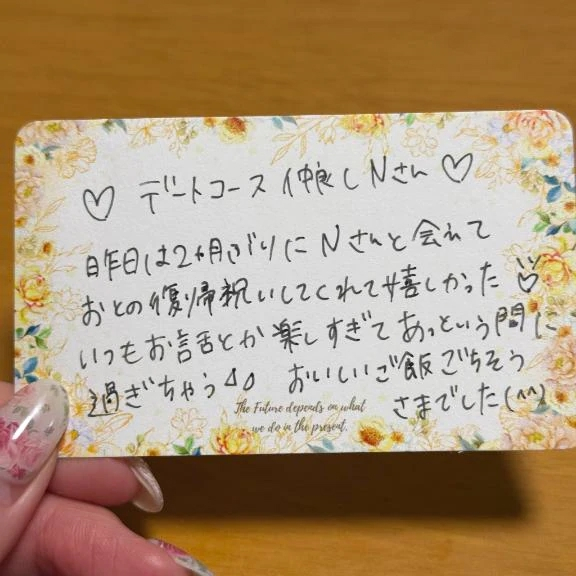 ♡ デートコース 仲良しNさん ♡
昨日は2ヶ月ぶりにNさんと会えて
おとの復帰祝いしてくれて嬉しかった
いつもお話とか楽しすぎてあっという間に
過ぎちゃう おいしいご飯ごちそう
さまでした(^^)
The Future depends on what
we do in the present.